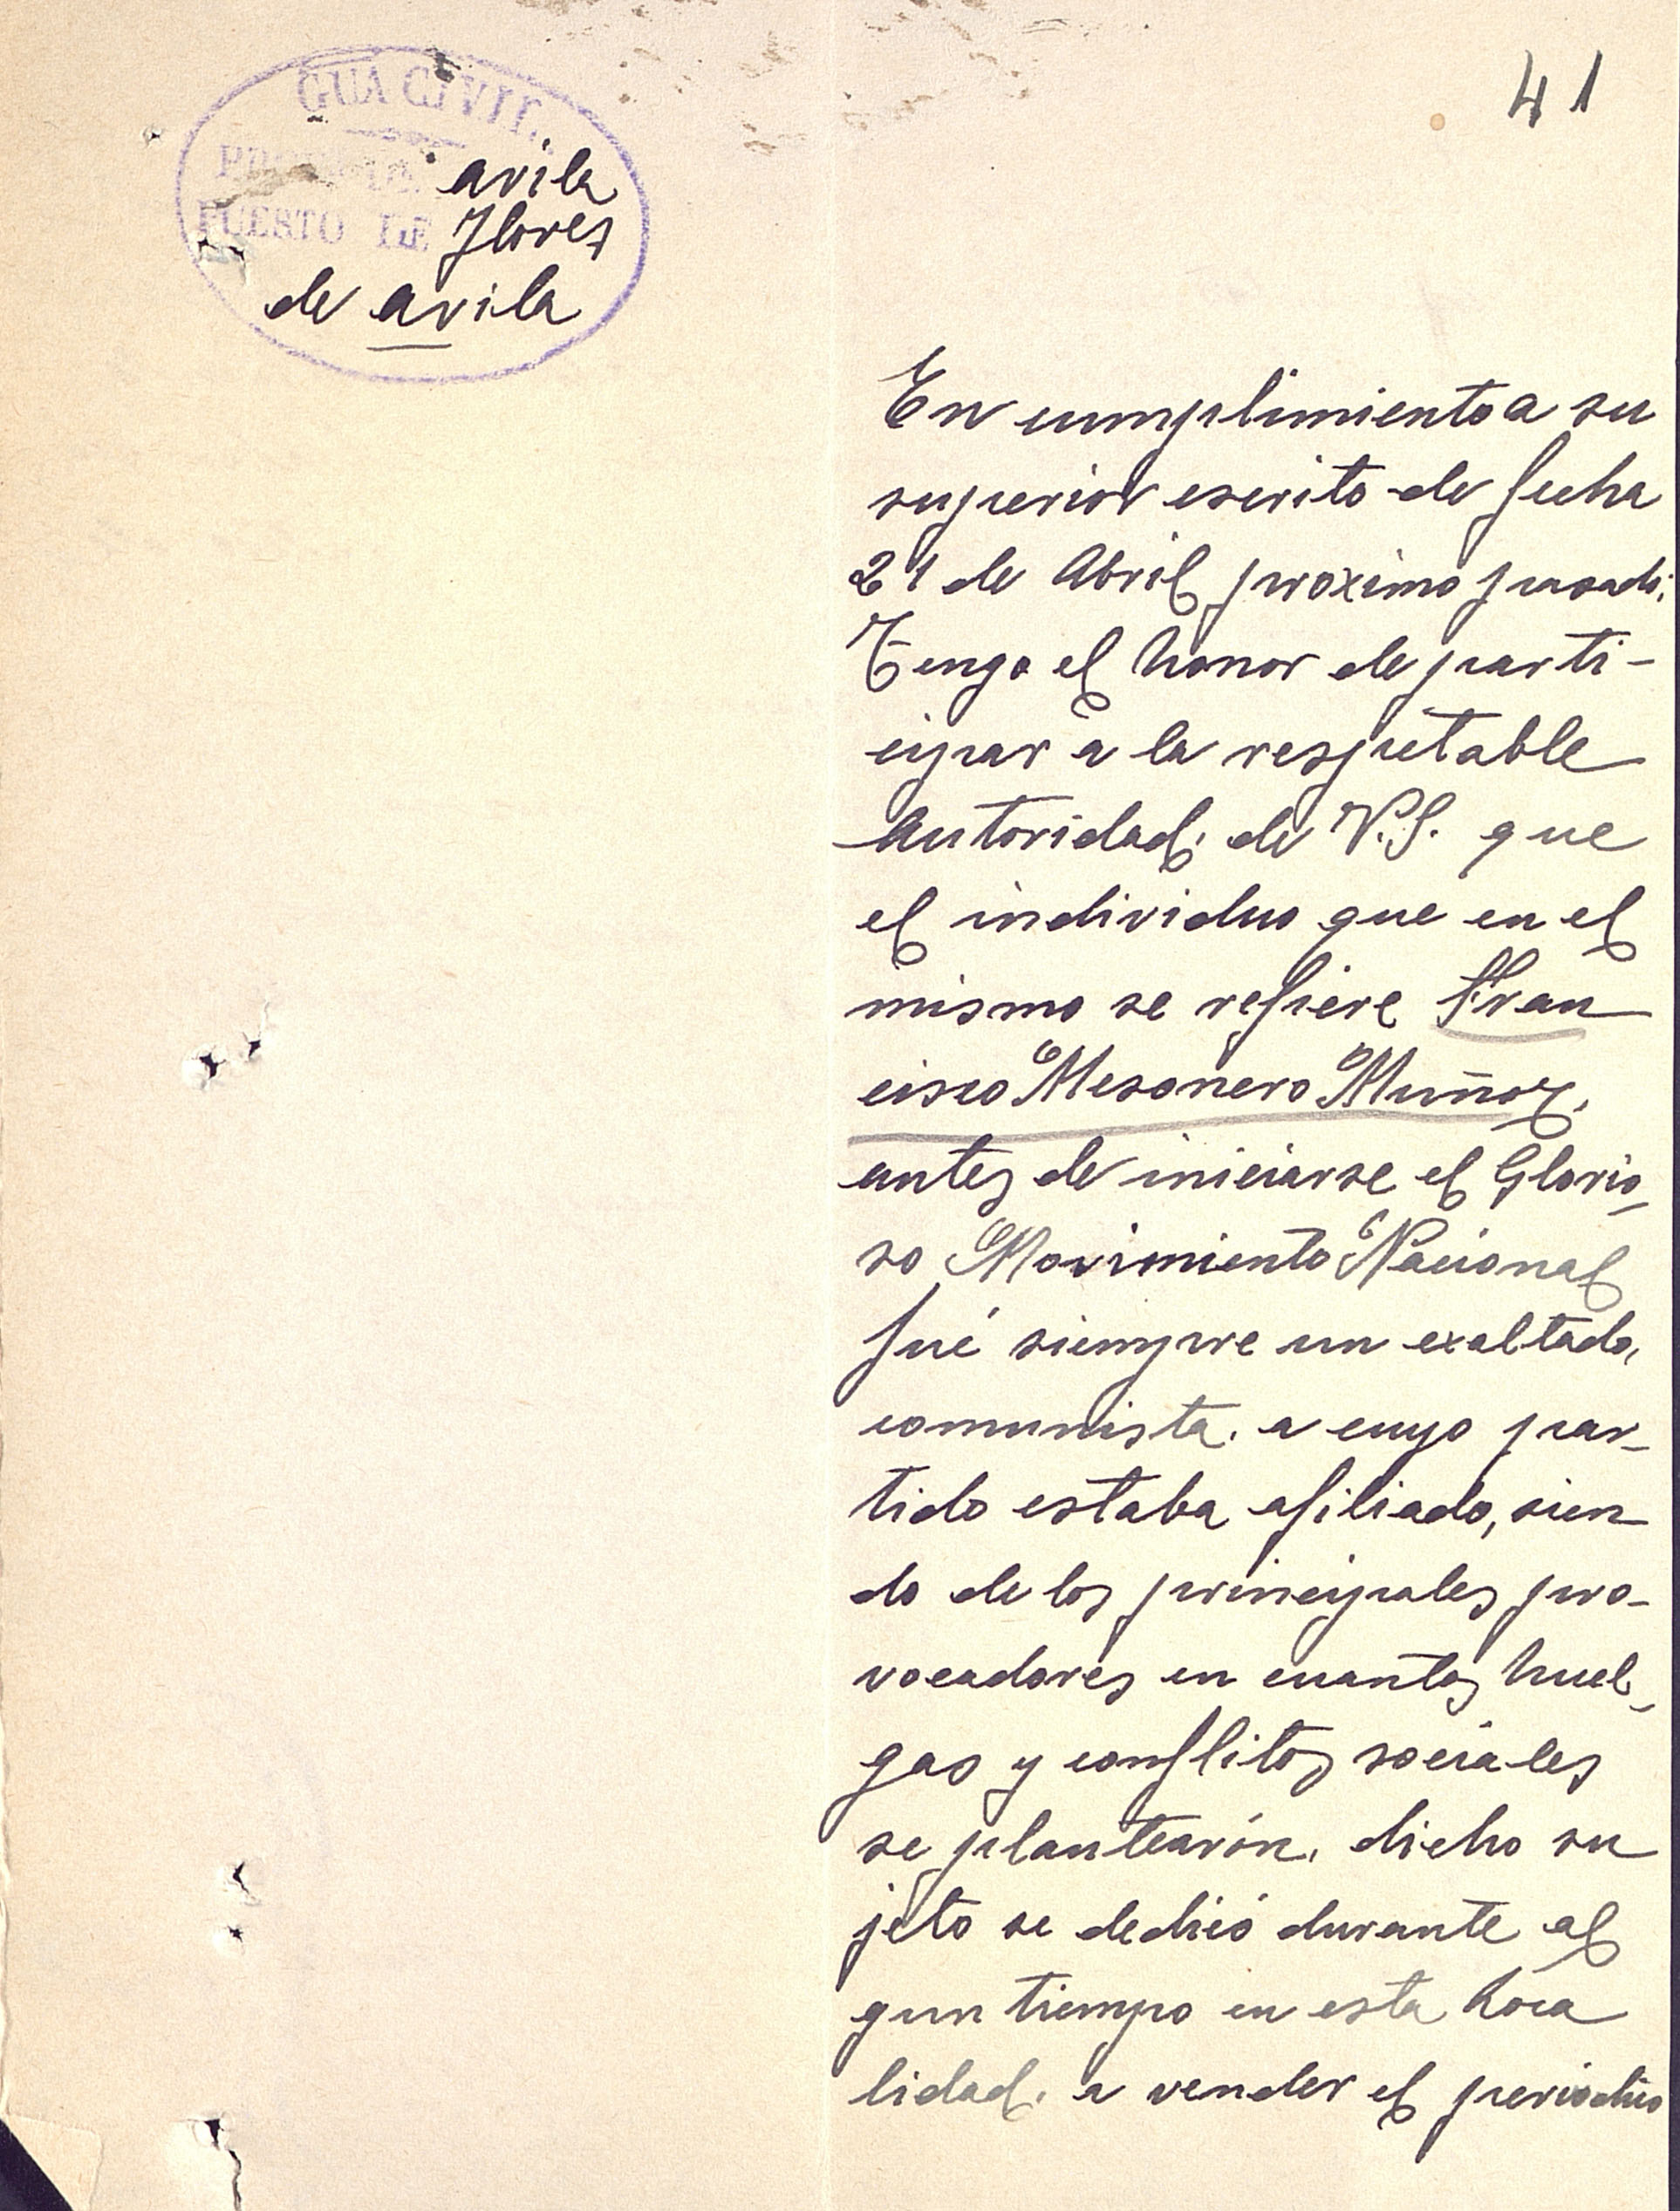 41
GUA CIVIL
avila
PUESTO DE Flores
de avila
En cumplimiento a su
superior escrito de fecha
21 de Abril proximo pasado;
Tengo el honor de parti-
cipar a la respetable
Autoridad. de V.S. que
el individuo que en el
mismo se refiere Fran
cisco Mesonero Muñoz,
antes de iniciarse el Glorio-
so Movimiento Nacional
fué siempre un exaltado,
comunista. a cuyo par-
tido estaba afiliado, sien
do de los principales pro-
vocadores en cuantos huel-
gas y conflitos sociales
se plantearón. dicho su
jeto se dedicó durante al
gun tiempo en esta loca
lidad. a vender el periodico